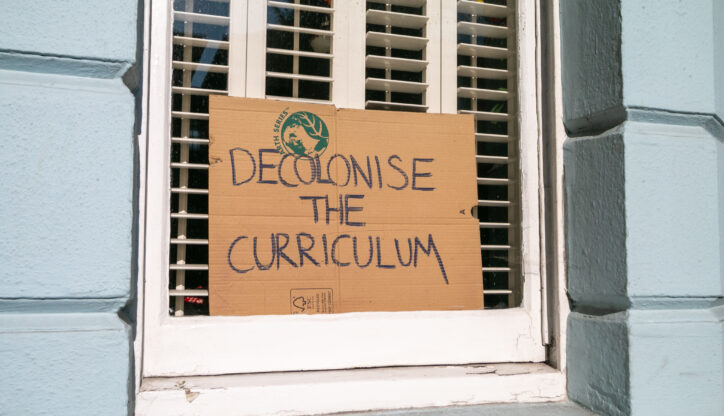 EARTH SERIES™
DECOLONISE
THE
CURRICULUM
A